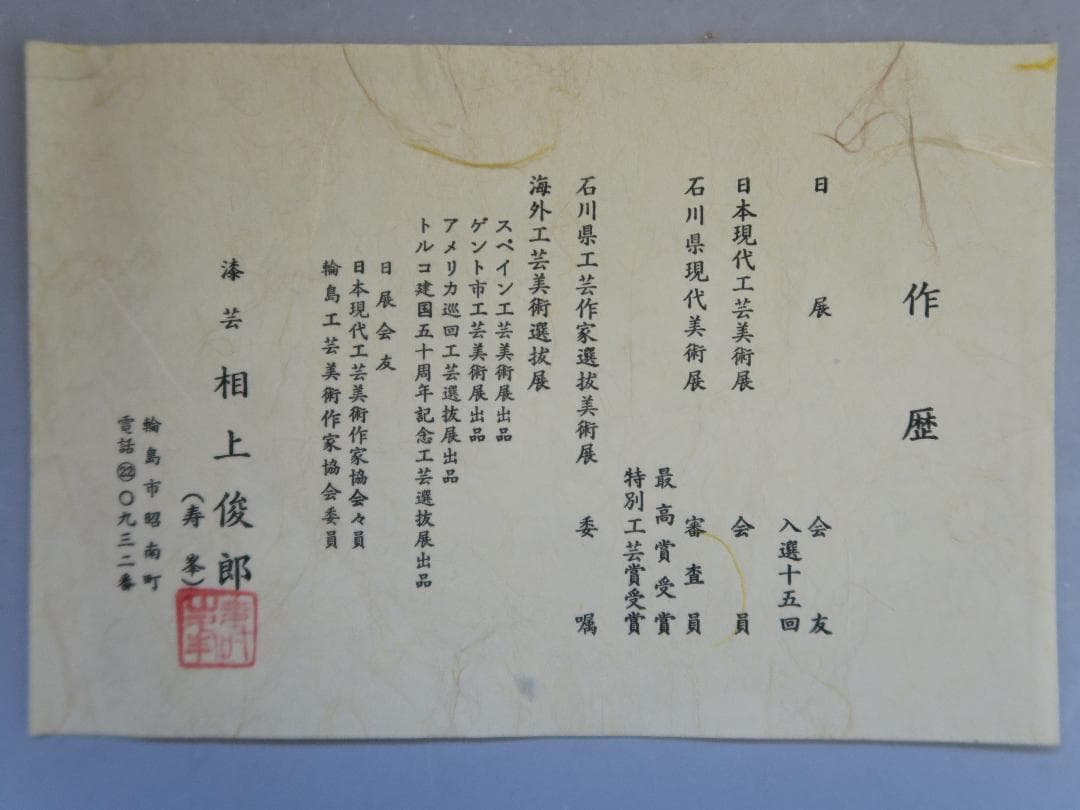 作歴
日展 会友
入選十五回
日本現代工芸美術展 会員
石川県現代美術展 審査員
最高賞受賞
特別工芸賞受賞
石川県工芸作家選抜美術展 委嘱
海外工芸美術選抜展
スペイン工芸美術展出品
ゲント市工芸美術展出品
アメリカ巡回工芸選抜展出品
トルコ建国五十周年記念工芸選抜展出品
日展会友
日本現代工芸美術作家協会々員
輪島工芸美術作家協会委員
漆芸 相上俊郎
(寿峯)
輪島市昭南町
電話㉒〇九三二番